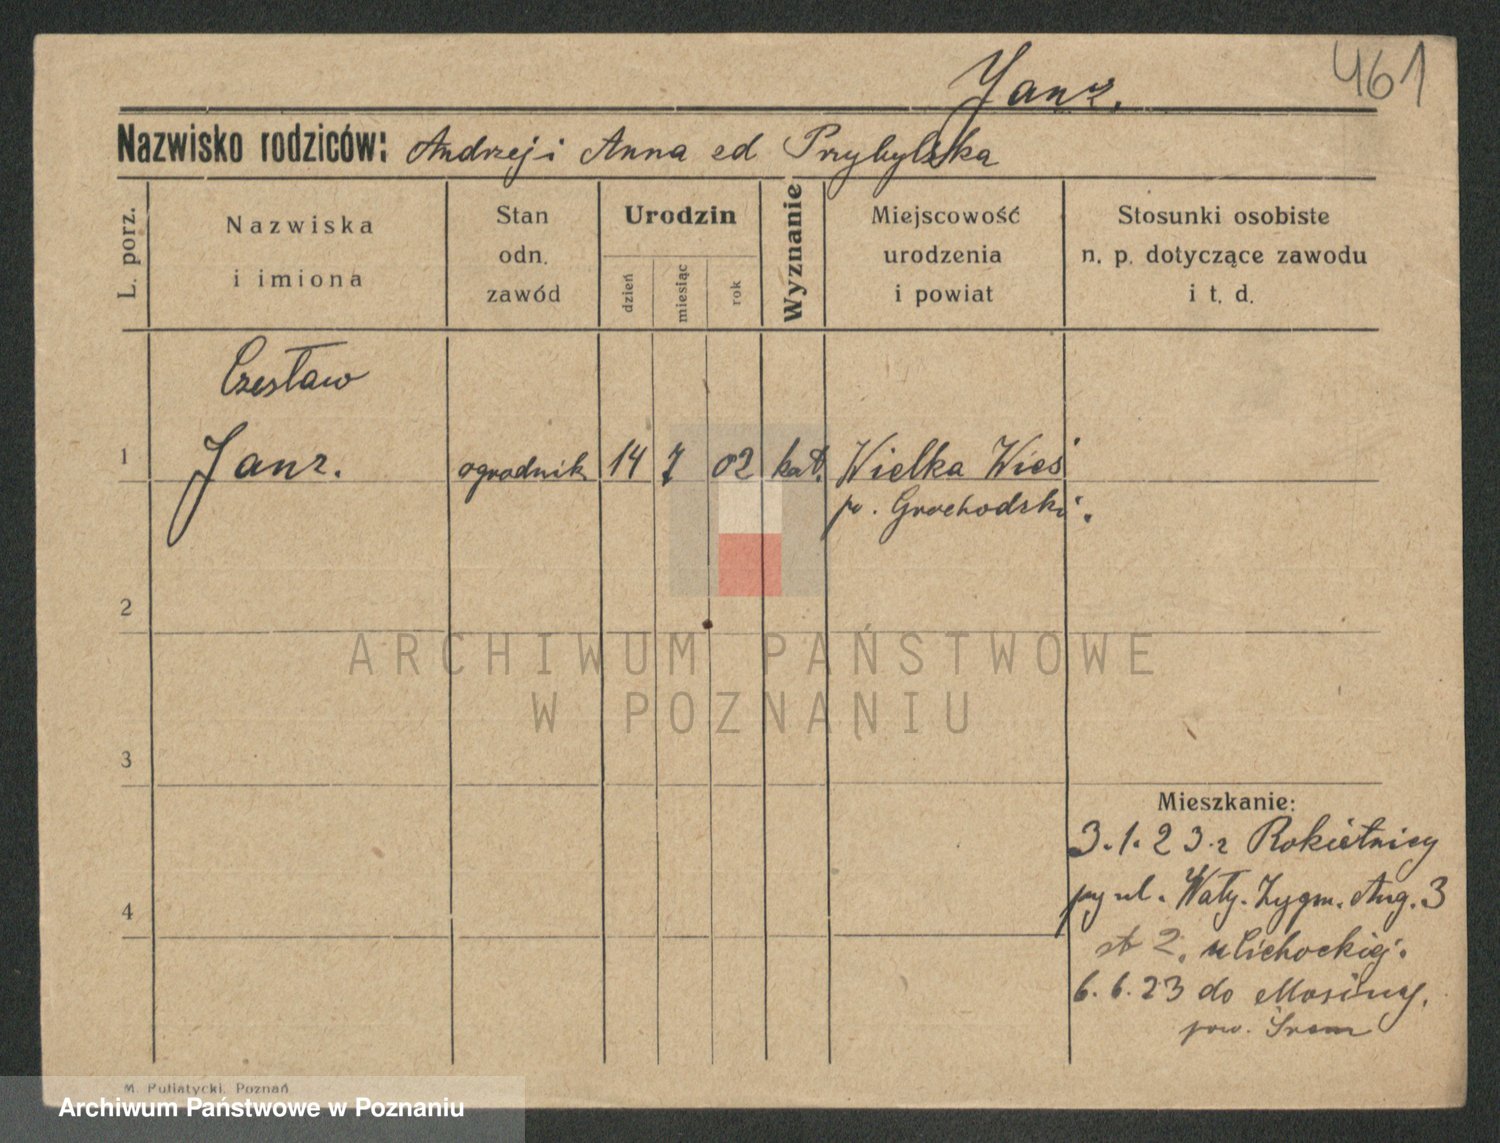 461
Janz.
Nazwisko rodziców: Andrzej i Anna ed Przybylska
L. porz.
Nazwiska
i imiona
Stan
odn.
zawód
Urodzin
dzień
miesiąc
rok
Wyznanie
Miejscowość
urodzenia
i powiat
Stosunki osobiste
n. p. dotyczące zawodu
i t. d.
Czesław
1 Janz. ogrodnik 14 7 02 kat. Wielka Wieś
p. Grochodski.
2
3
4
Mieszkanie:
3.1.23 z Rokietnicy
ul. Wały. Zygm. Aug. 3
2. u Cichockiej.
6.6.23 do Mosiny.
pow. Śrem
M. Putiatycki, Poznań
ARCHIWUM PAŃSTWOWE
W POZNANIU
Archiwum Państwowe w Poznaniu